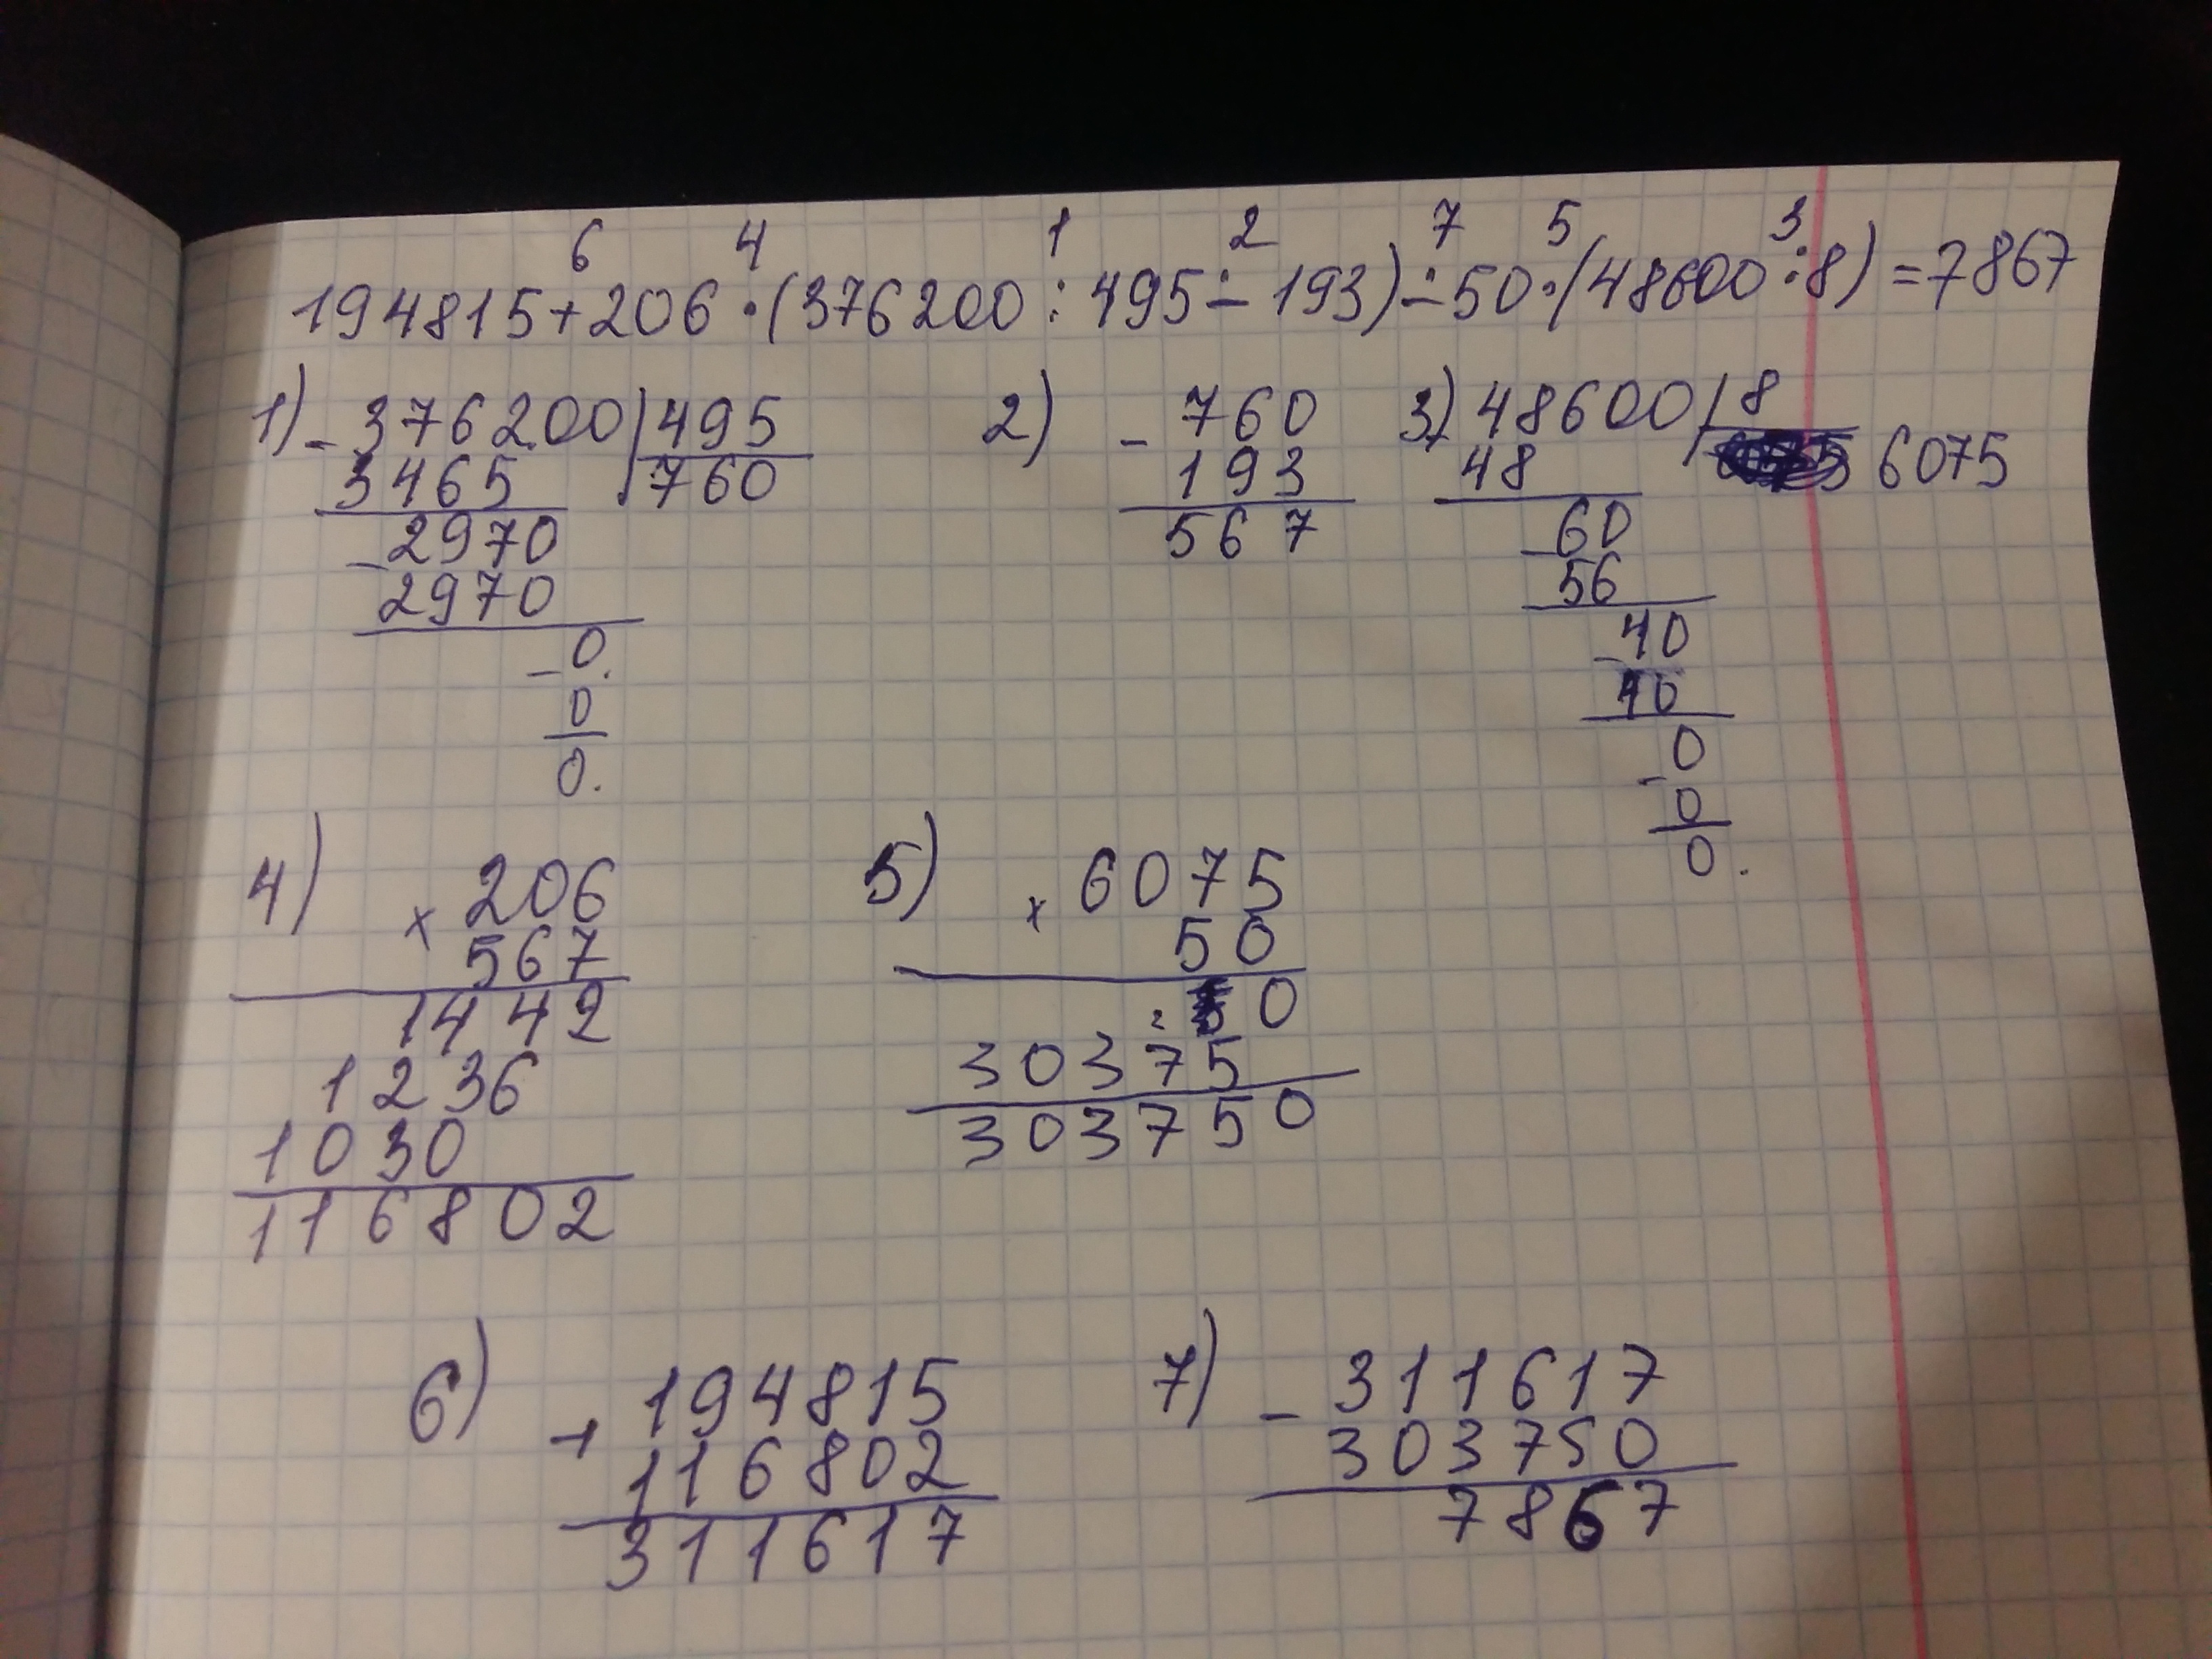 6 4 1 2 7 5 3
194815+206·(376200:495-193)-50·(48600:8)=7867
1) - 376200 | 495
3465 760
- 2970
2970
- 0.
0
0.
2) - 760
193
567
3) 48600 | 8
48 6075
- 60
56
- 40
40
- 0
0
0.
4) × 206
567
1442
1236
1030
116802
5) × 6075
50
0
2
30375
303750
6) + 194815
116802
311617
7) - 311617
303750
7867